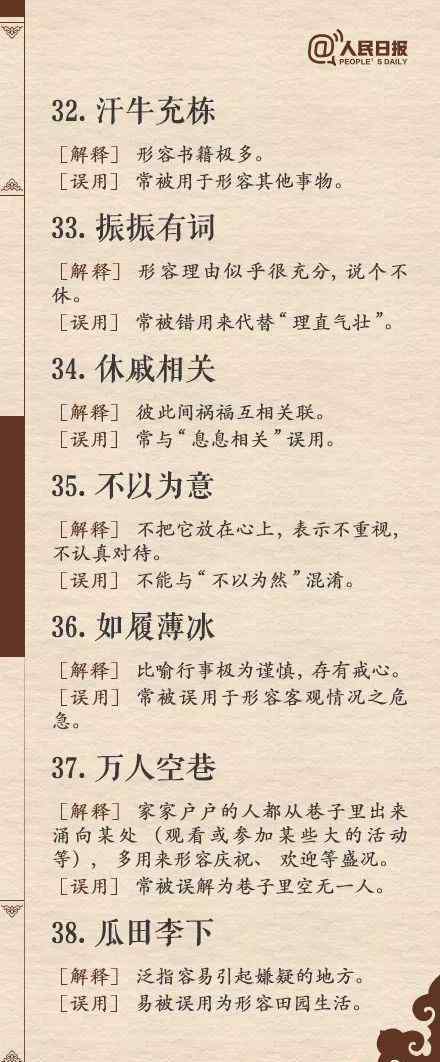 @人民日报
PEOPLE'S DAILY
32. 汗牛充栋
［解释］ 形容书籍极多。
［误用］ 常被用于形容其他事物。
33. 振振有词
［解释］ 形容理由似乎很充分，说个不
休。
［误用］ 常被错用来代替“理直气壮”。
34. 休戚相关
［解释］ 彼此间祸福互相关联。
［误用］ 常与“息息相关”误用。
35. 不以为意
［解释］ 不把它放在心上，表示不重视，
不认真对待。
［误用］ 不能与“不以为然”混淆。
36. 如履薄冰
［解释］ 比喻行事极为谨慎，存有戒心。
［误用］ 常被误用于形容客观情况之危
急。
37. 万人空巷
［解释］ 家家户户的人都从巷子里出来
涌向某处（观看或参加某些大的活动
等），多用来形容庆祝、欢迎等盛况。
［误用］ 常被误解为巷子里空无一人。
38. 瓜田李下
［解释］ 泛指容易引起嫌疑的地方。
［误用］ 易被误用为形容田园生活。